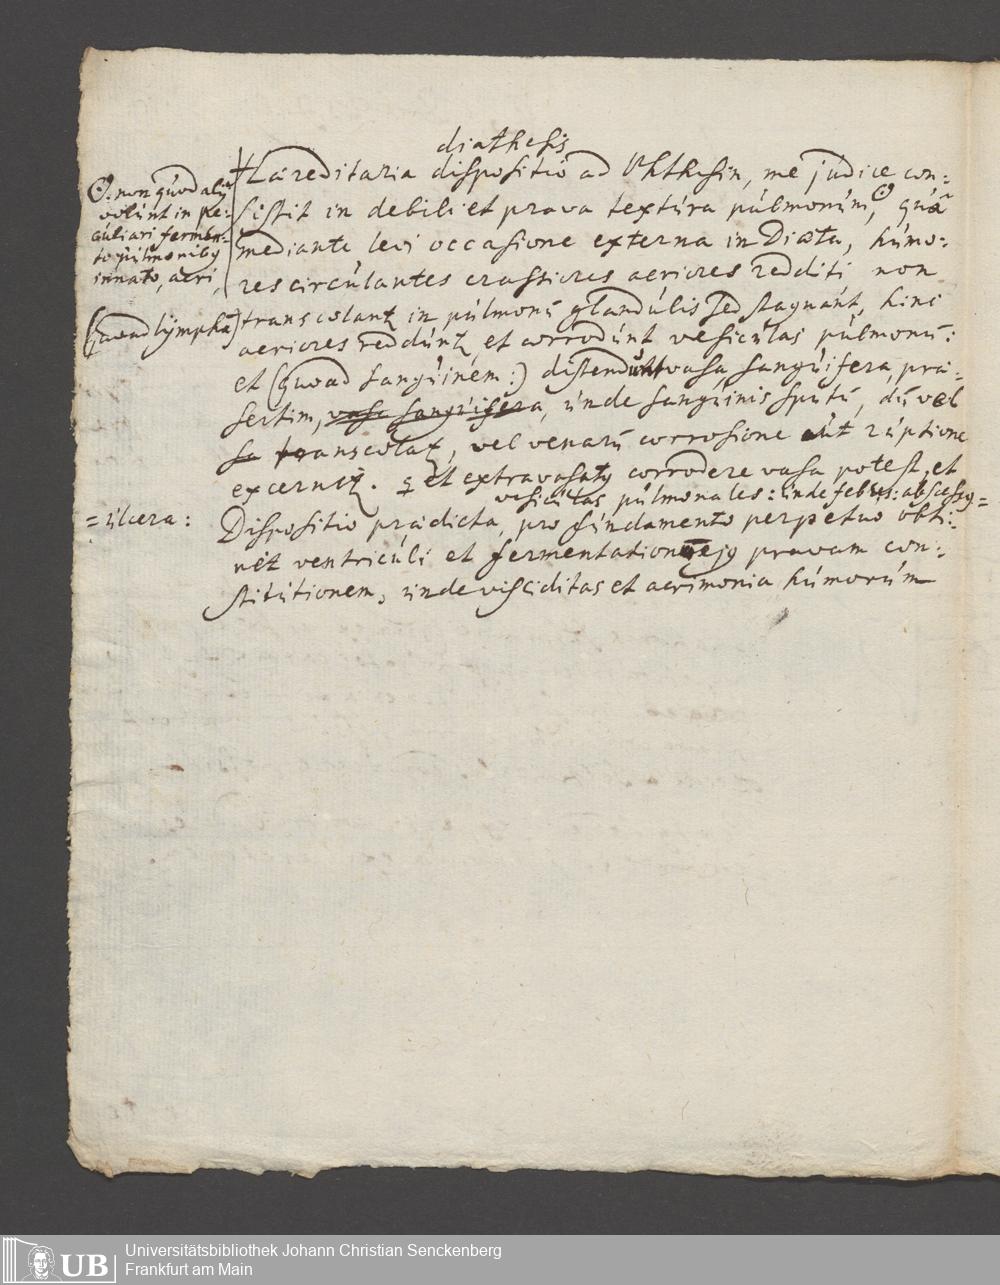 diathesis
Haereditaria dispositio ad Phthisin, me judice con-
sistit in debili et prava textura pulmonum, ʘ quâ
mediante, levi occasione externa in Diaeta, humo-
res circulantes crassiores acriores redditi non
transcolant in pulmonū glandulis sed stagnant, hinc
acriores reddunt, et corrodunt vesiculas pulmonū:
et (quoad sanguinem:) distendunt vasa sanguifera, prae-
sertim, vasa sanguifera, unde sanguinis sputū, dū vel
transcolat, vel venarū corrosione aut ruptione
excernit. et extravasatq corrodere vasa potest, et
vesiculas pulmonales: inde febris: abscessq =
Dispositio praedicta, pro fundamento perpetuo obti-
net ventriculi et fermentationis ejq pravam con-
stitutionem, unde visciditas et acrimonia humorum
ʘ. non quod alij
volunt in pe-
culiari fermen-
to pulmonibq
innato, acri,
(quoad lympha)
= ulcera:
UB
Universitätsbibliothek Johann Christian Senckenberg
Frankfurt am Main